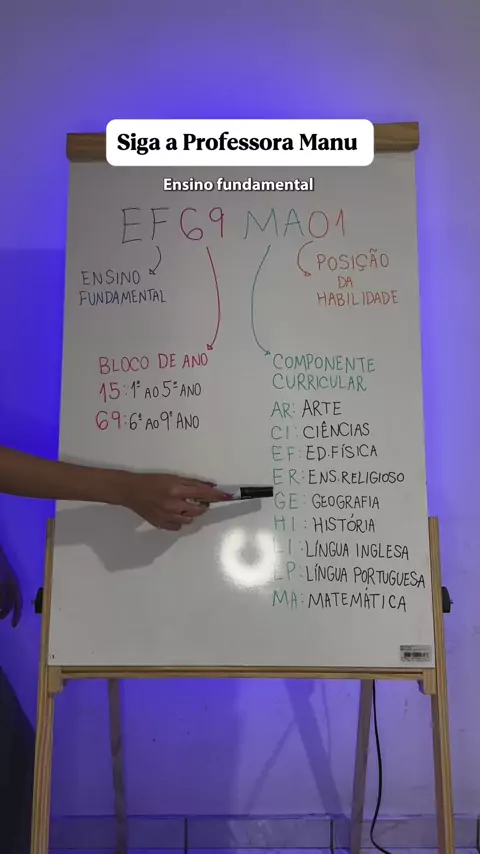 Siga a Professora Manu
Ensino fundamental
EF69MA01
ENSINO
FUNDAMENTAL
POSIÇÃO
DA
HABILIDADE
BLOCO DE ANO
15: 1º AO 5º ANO
69: 6º AO 9º ANO
COMPONENTE
CURRICULAR
AR: ARTE
CI: CIÊNCIAS
EF: ED. FÍSICA
ER: ENS. RELIGIOSO
GE: GEOGRAFIA
HI: HISTÓRIA
LI: LÍNGUA INGLESA
LP: LÍNGUA PORTUGUESA
MA: MATEMÁTICA